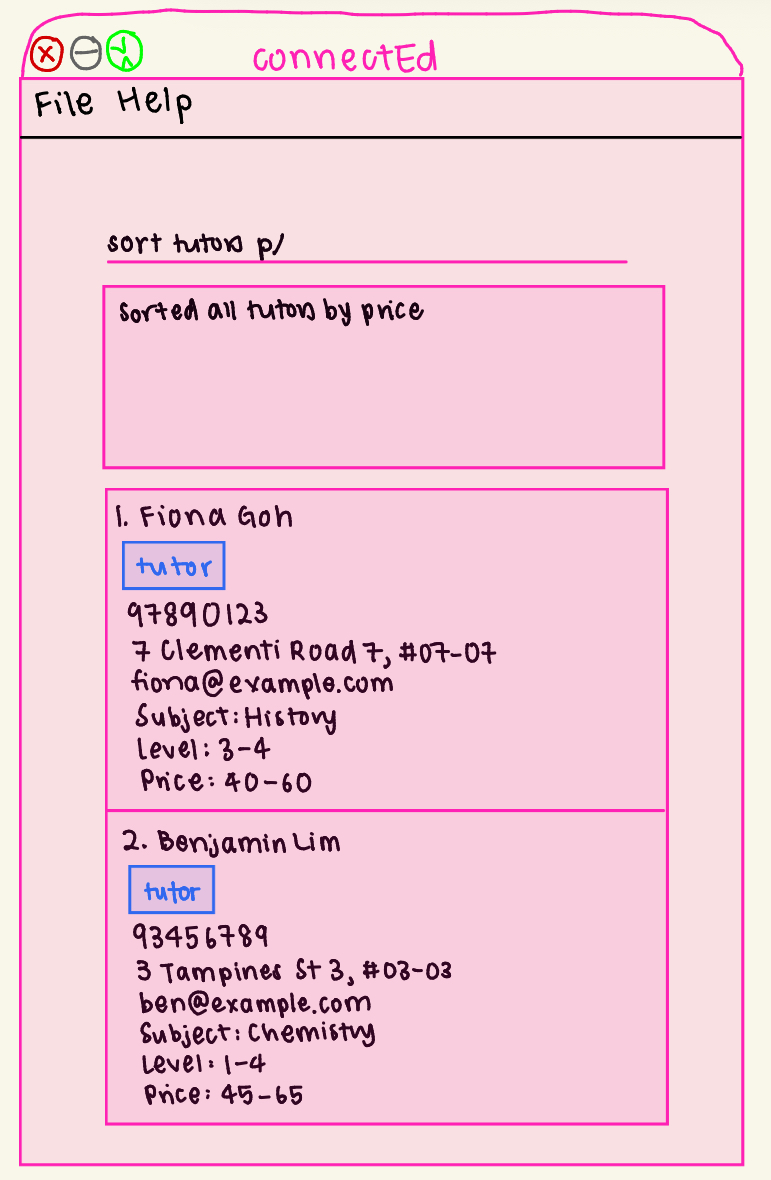 connectEd
File Help
sort tutors p/
Sorted all tutors by price
1. Fiona Goh
tutor
97890123
7 Clementi Road 7, #07-07
fiona@example.com
Subject: History
Level: 3-4
Price: 40-60
2. Benjamin Lim
tutor
93456789
3 Tampines St 3, #03-03
ben@example.com
Subject: Chemistry
Level: 1-4
Price: 45-65